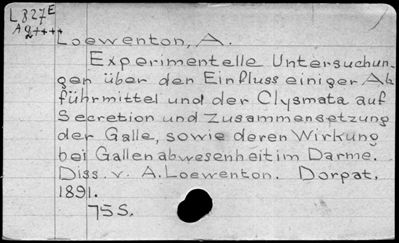 L827E
A 2++++
Loewenton, A.
Experimentelle Untersuchun-
gen über den Einfluss einiger Ab
führmittel und der Clysmata auf
Secretion und Zusammensetzung
der Galle, sowie deren Wirkung
bei Gallenabwesenheit im Darme.
Diss. v. A. Loewenton. Dorpat.
1891.
75 S.